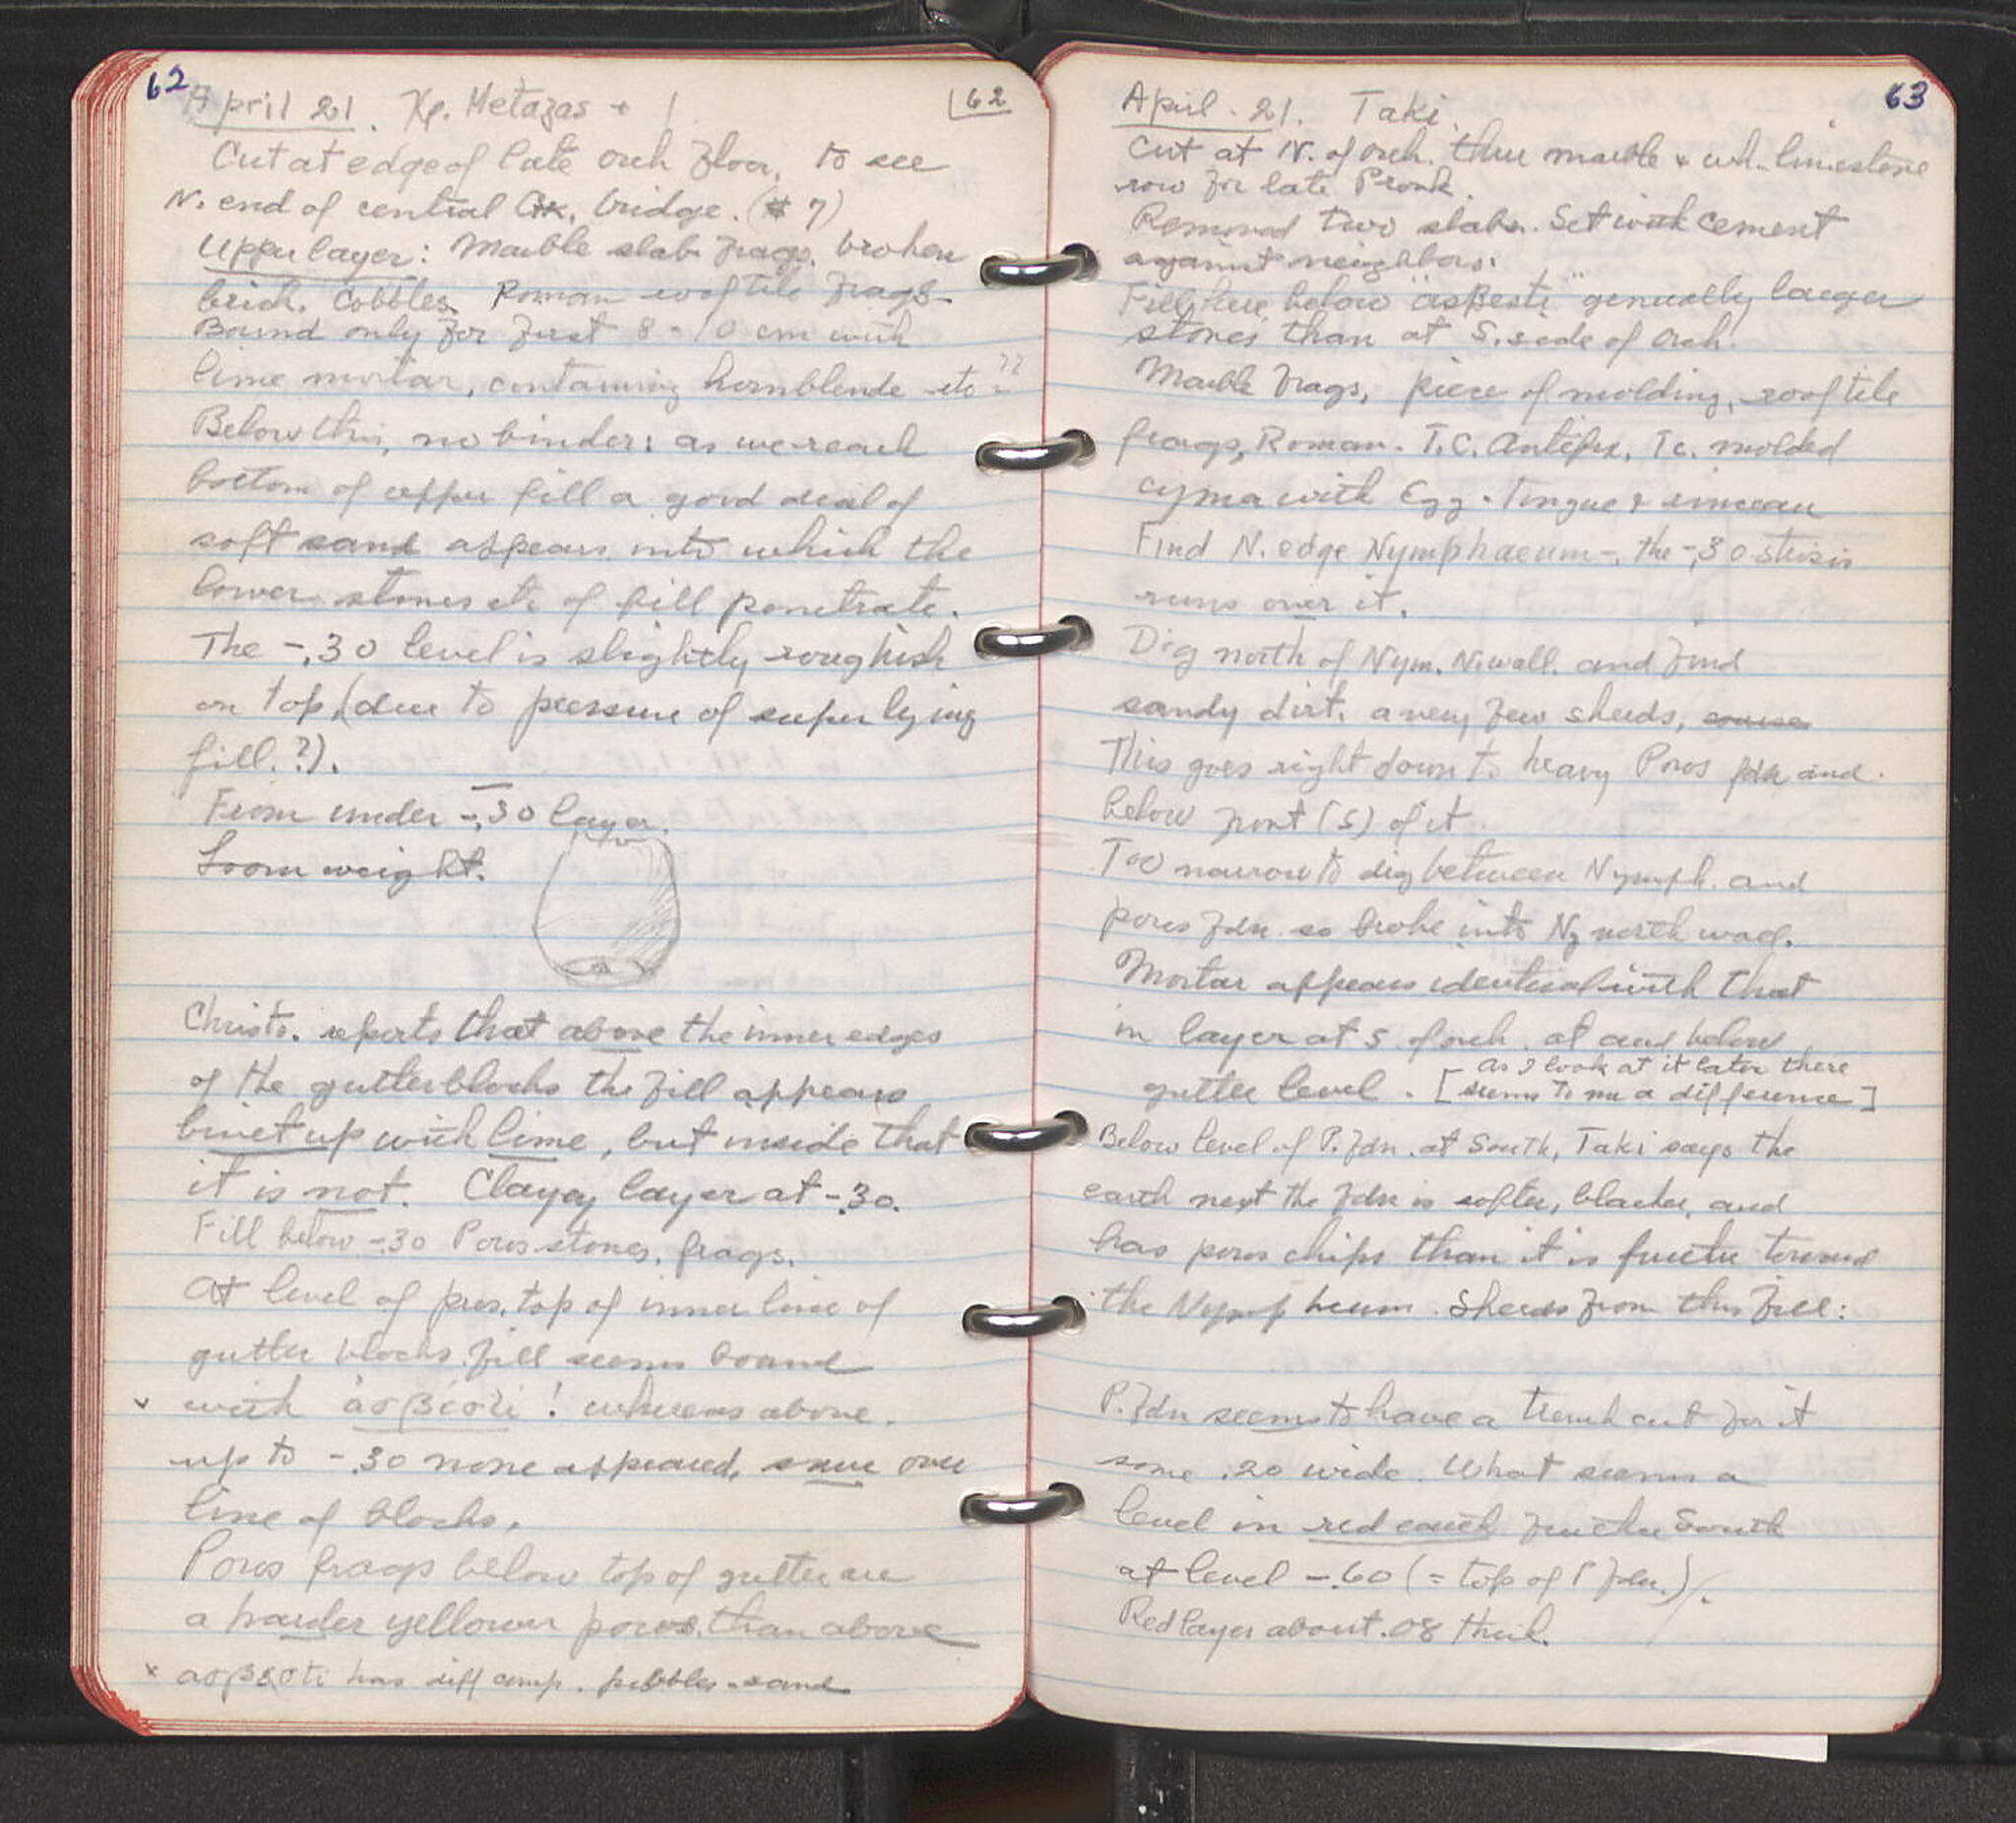 62
April 21. Xp. Metaxas + 1
62
Cut at edge of late orch floor, to see
N. end of central Gk. bridge. (#7)
Upper layer: Marble slab frags. broken
brick. Cobbles. Roman roof tile frags.
Bound only for first 8-10 cm with
lime mortar, containing hornblende etc ??
Below this, no binder: as we reach
bottom of upper fill a good deal of
soft sand appears into which the
lower stones etc of fill penetrate.
The -.30 level is slightly roughish
on top (due to pressure of super lying
fill.?).
From under -.30 layer.
Loom weight.
Christo. reports that above the inner edges
of the gutter blocks the fill appears
binet up with lime, but inside that
it is not. Clayey layer at -.30.
Fill below -.30 Poros stones, frags.
At level of pres. top of inner line of
gutter blocks fill seems bound
with ασβέστι! whereas above.
up to -.30 none appeared, save over
line of blocks.
Poros frags below top of gutter are
a harder yellower poros. than above
x ασβεστι has diff comp. pebbles - sand
63
April. 21. Taki.
Cut at N. of orch. thru marble & wh. limestone
row for late Prosk.
Removed two slabs. Set with cement
against neighbors.
Fill here below "asbesti" generally larger
stones than at S. side of Orch.
Marble frags, piece of molding, roof tile
frags, Roman. T.C. Antefix, Tc. molded
cyma with Egg - Tongue & rinceau
Find N. edge Nymphaeum -. the -.30 stosis
runs over it.
Dig north of Nym. N. wall. and find
sandy dirt. a very few sherds,
This goes right down to heavy Poros fdn and
below front (S) of it.
Too narrow to dig between Nymph. and
poros fdn. so broke into Ny north wall.
Mortar appears identical with that
in layer at S. of orch. at and below
gutter level. [as I look at it later there
seems to me a difference]
Below level of P. fdn. at South, Taki says the
earth next the fdn is softer, blacker, and
has poros chips than it is further toward
the Nympheum. Sherds from this fill:
P. fdn seems to have a trench cut for it
some .20 wide. What seems a
level in red earth further South
at level -.60 (= top of P fdn.).
Red layer about .08 thick.